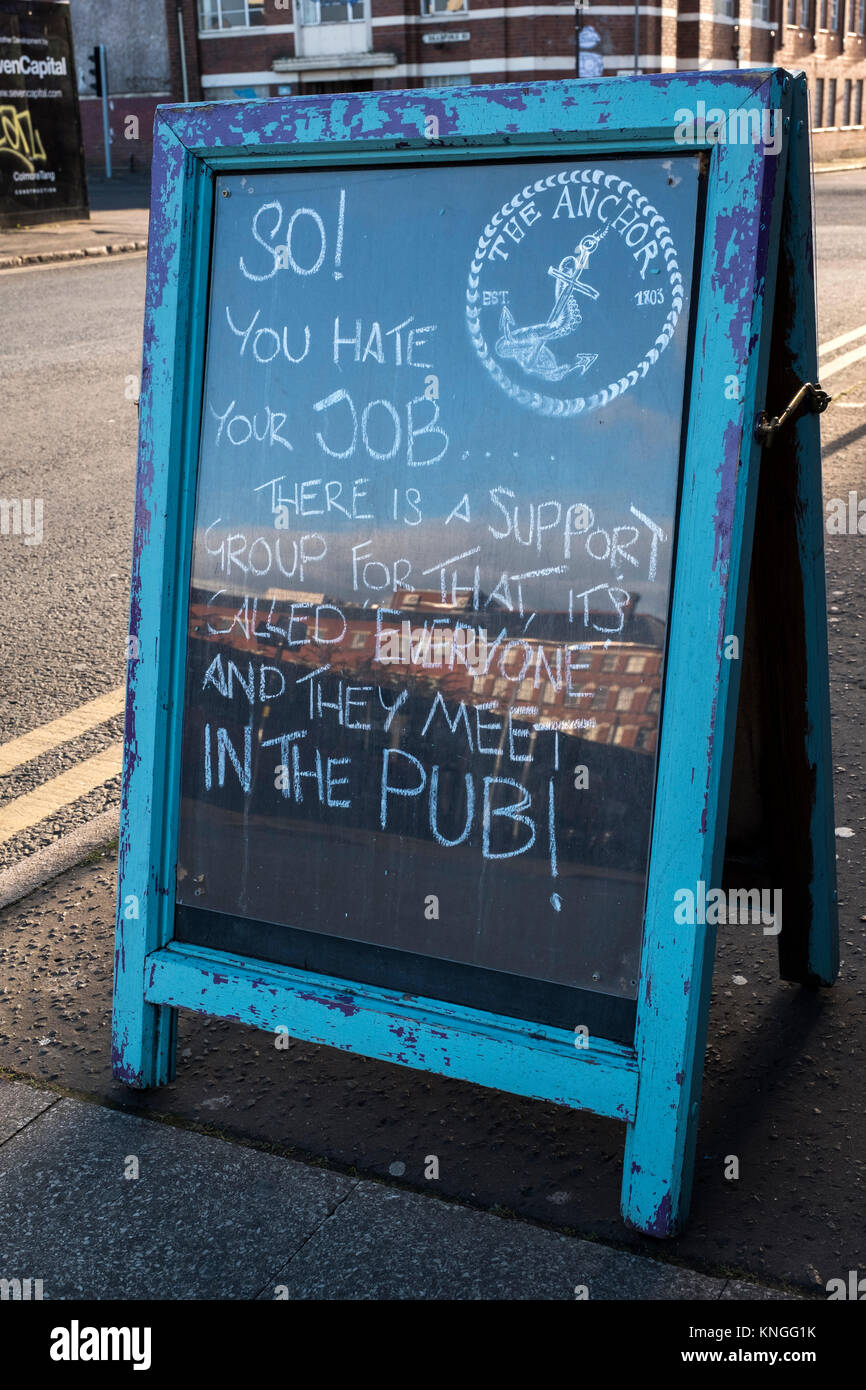 SevenCapital
www.sevencapital.com
ColmoreTang
CONSTRUCTION
THE ANCHOR
EST. 1803
SO!
YOU HATE
YOUR JOB.....
THERE IS A SUPPORT
GROUP FOR THAT, IT'S
CALLED EVERYONE
AND THEY MEET
IN THE PUB!
alamy
Image ID: KNGG1K
www.alamy.com